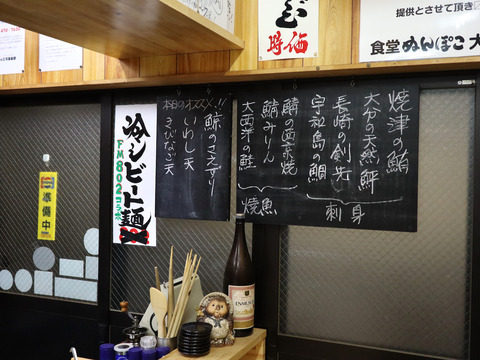 時価
提供とさせて頂き
食堂 ぬんぽこ 大
焼津の鮪
大分の天然鮃
長崎の剣先
宇和島の鯛
刺身
鯖の西京焼
鯖みりん
大西洋の鮭
焼魚
本日のオススメ!!
鯨のさえずり
いわし天
きびなご天
冷シビート麺
FM802コラボ
準備中